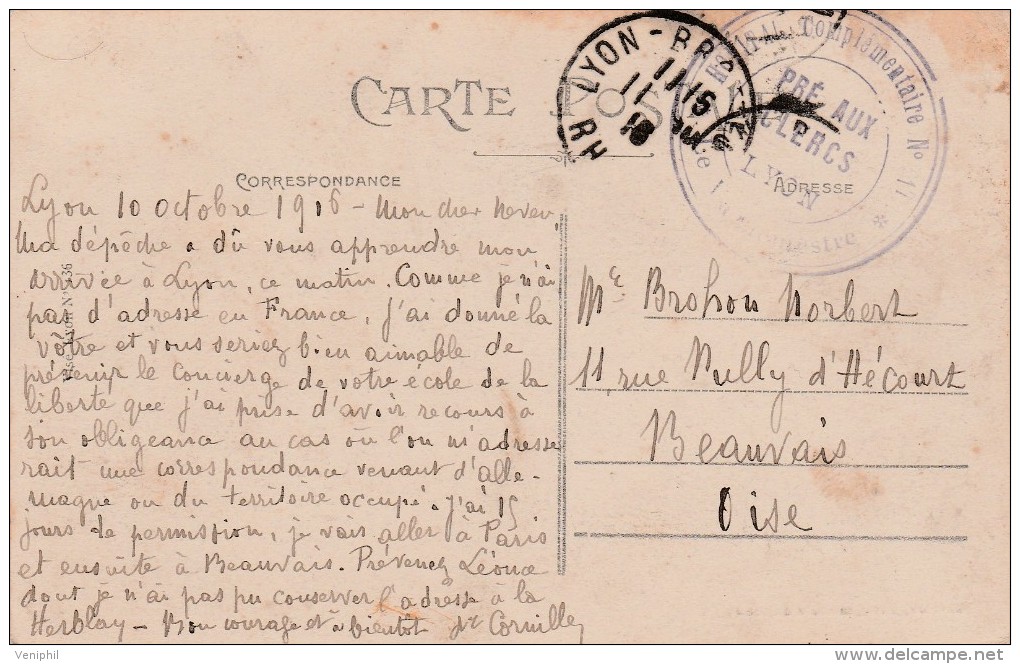 CARTE POS
HR LYON - BR
11/15
11
HOPITAL Complémentaire No 11
PRÉ AUX
CLERCS
LYON
CORRESPONDANCE
ADRESSE
Lyon 10 octobre 1916 - Mon cher neveu
Ma dépêche a dû vous apprendre mon
arrivée à Lyon, ce matin. Comme je n'ai
pas d'adresse en France, j'ai donné la
vôtre et vous seriez bien aimable de
prévenir le concierge de votre école de la
liberté que j'ai prise d'avoir recours à
son obligeance au cas où l'on m'adresse
rait une correspondance venant d'alle-
magne ou du territoire occupé. J'ai 15
jours de permission, je vais aller à Paris
et ensuite à Beauvais. Prévenez Léonce
dont je n'ai pas pu conserver l'adresse à la
Herblay - Bon courage et à bientôt
Mr Brohon Norbert
11, rue Nully d'Hécourt
Beauvais
Oise
© Yuniphil
delcampe.net